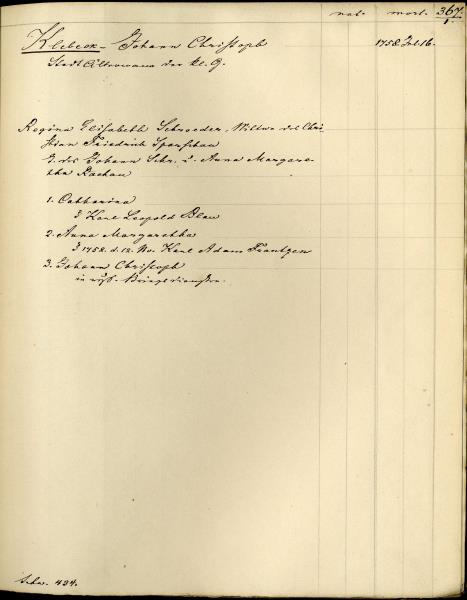 nat. mort. 367.
1.
Klebeck - Johann Christoph 1758. Jul. 16.
Stadt Ältermann der kl. G.
Regina Elisabeth Schroeder, Wittwe des Chri-
stian Friedrich Sparschau
T. des Johann Schr. u. Anna Margare-
tha Rachau
1. Catharina
Karl Leopold Blau
2. Anna Margaretha
1758. d. 12. No. Karl Adam Frantzen
3. Johann Christoph
in russ. Kriegsdiensten.
Schw. 434.